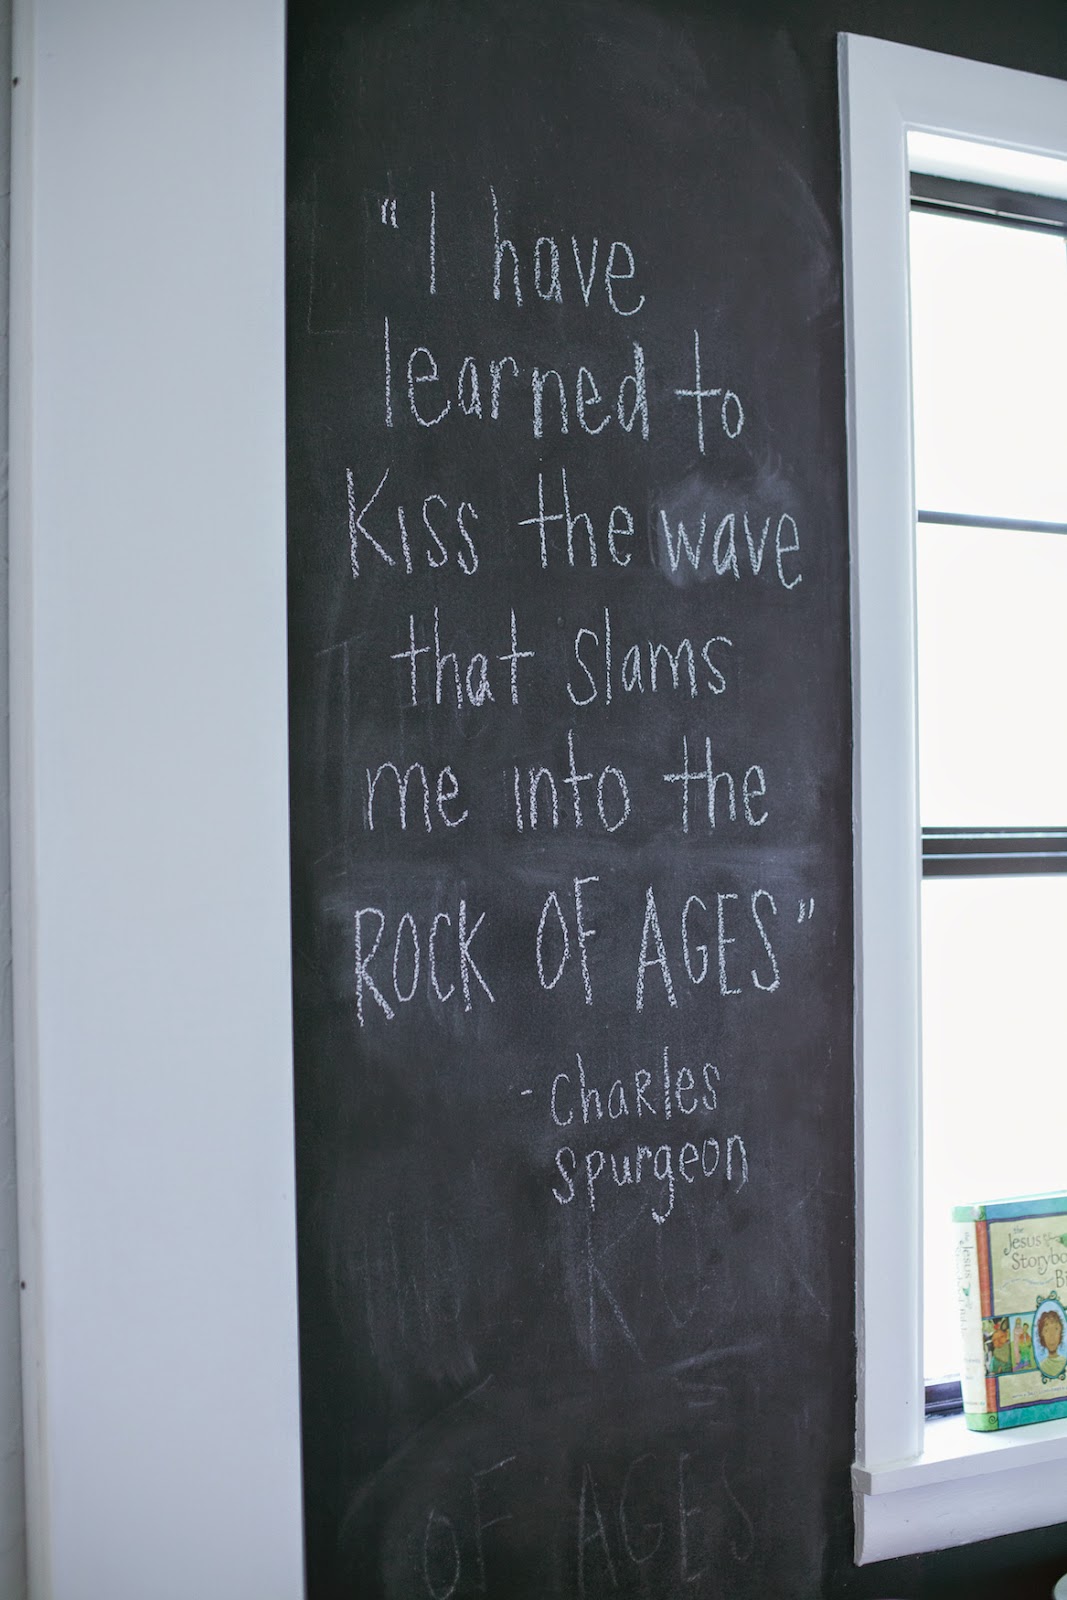 "I have
learned to
Kiss the wave
that slams
me into the
ROCK OF AGES"
- Charles
Spurgeon
OF AGES
the
Jesus
Storybo